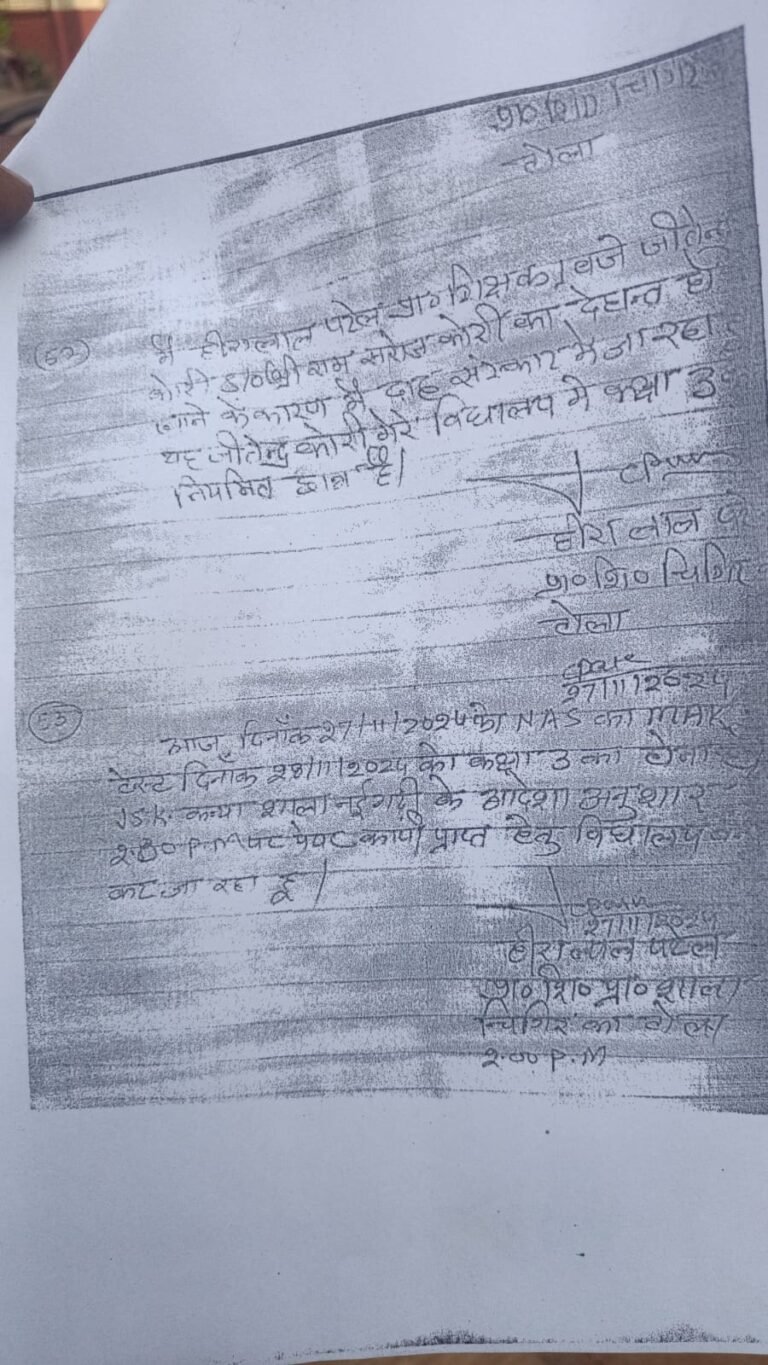 प्र० शि० चिगिर
टोला
(52) मैं हीरालाल पटेल प्रा० शिक्षक 1 वजे जीतेन्
कोरी S/o श्री राम सरोज कोरी का देहान्त हो
जाने के कारण मैं दाह संस्कार मे जा रहा
यह जीतेन्द्र कोरी मेरे विद्यालय मे कक्षा 3
नियमित छात्र है।
हीरा लाल प
प्र० शि० चिगिर
टोला
27/11/2024
53
आज दिनाँक 27/11/2024 को NAS का
टेस्ट दिनाँक 28/11/2024 को कक्षा 3 का होना
J.S.K. कन्या शाला नईगढ़ी के आदेश अनुशार
2:00 P.M पर पेपर कापी प्राप्त हेतु विद्यालय
कर जा रहा हूँ।
27/11/2024
हीरालाल पटेल
प्र० शि० प्रा० शाला
चिगिर का टोला
2.00 P.M